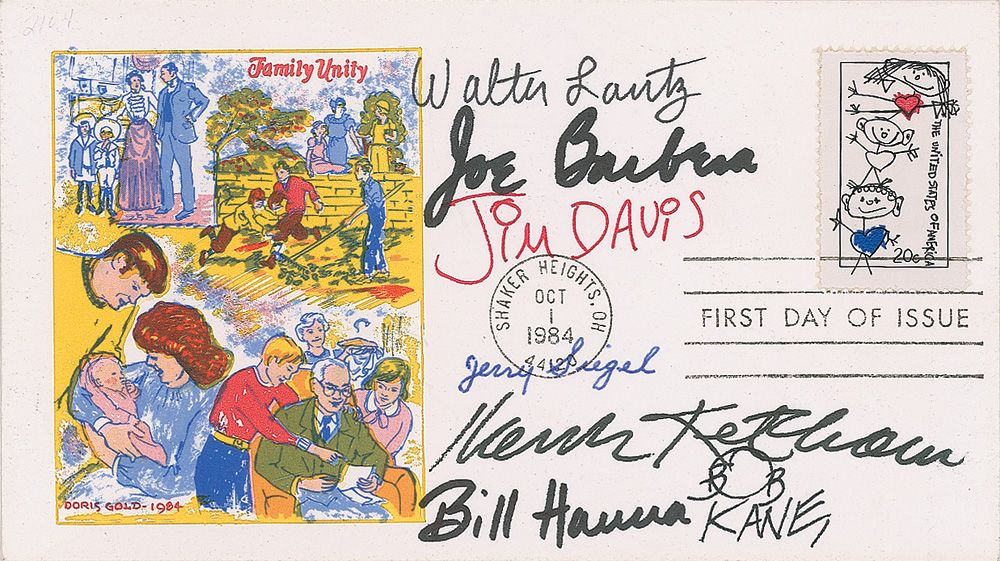 Family Unity
DORIS GOLD-1984
Walter Lantz
Joe Barbera
Jim DAVIS
SHAKER HEIGHTS, OH
OCT
1
1984
44120
Jerry Siegel
Hank Ketcham
BOB
KANE
Bill Hanna
THE UNITED STATES OF AMERICA
20c
FIRST DAY OF ISSUE